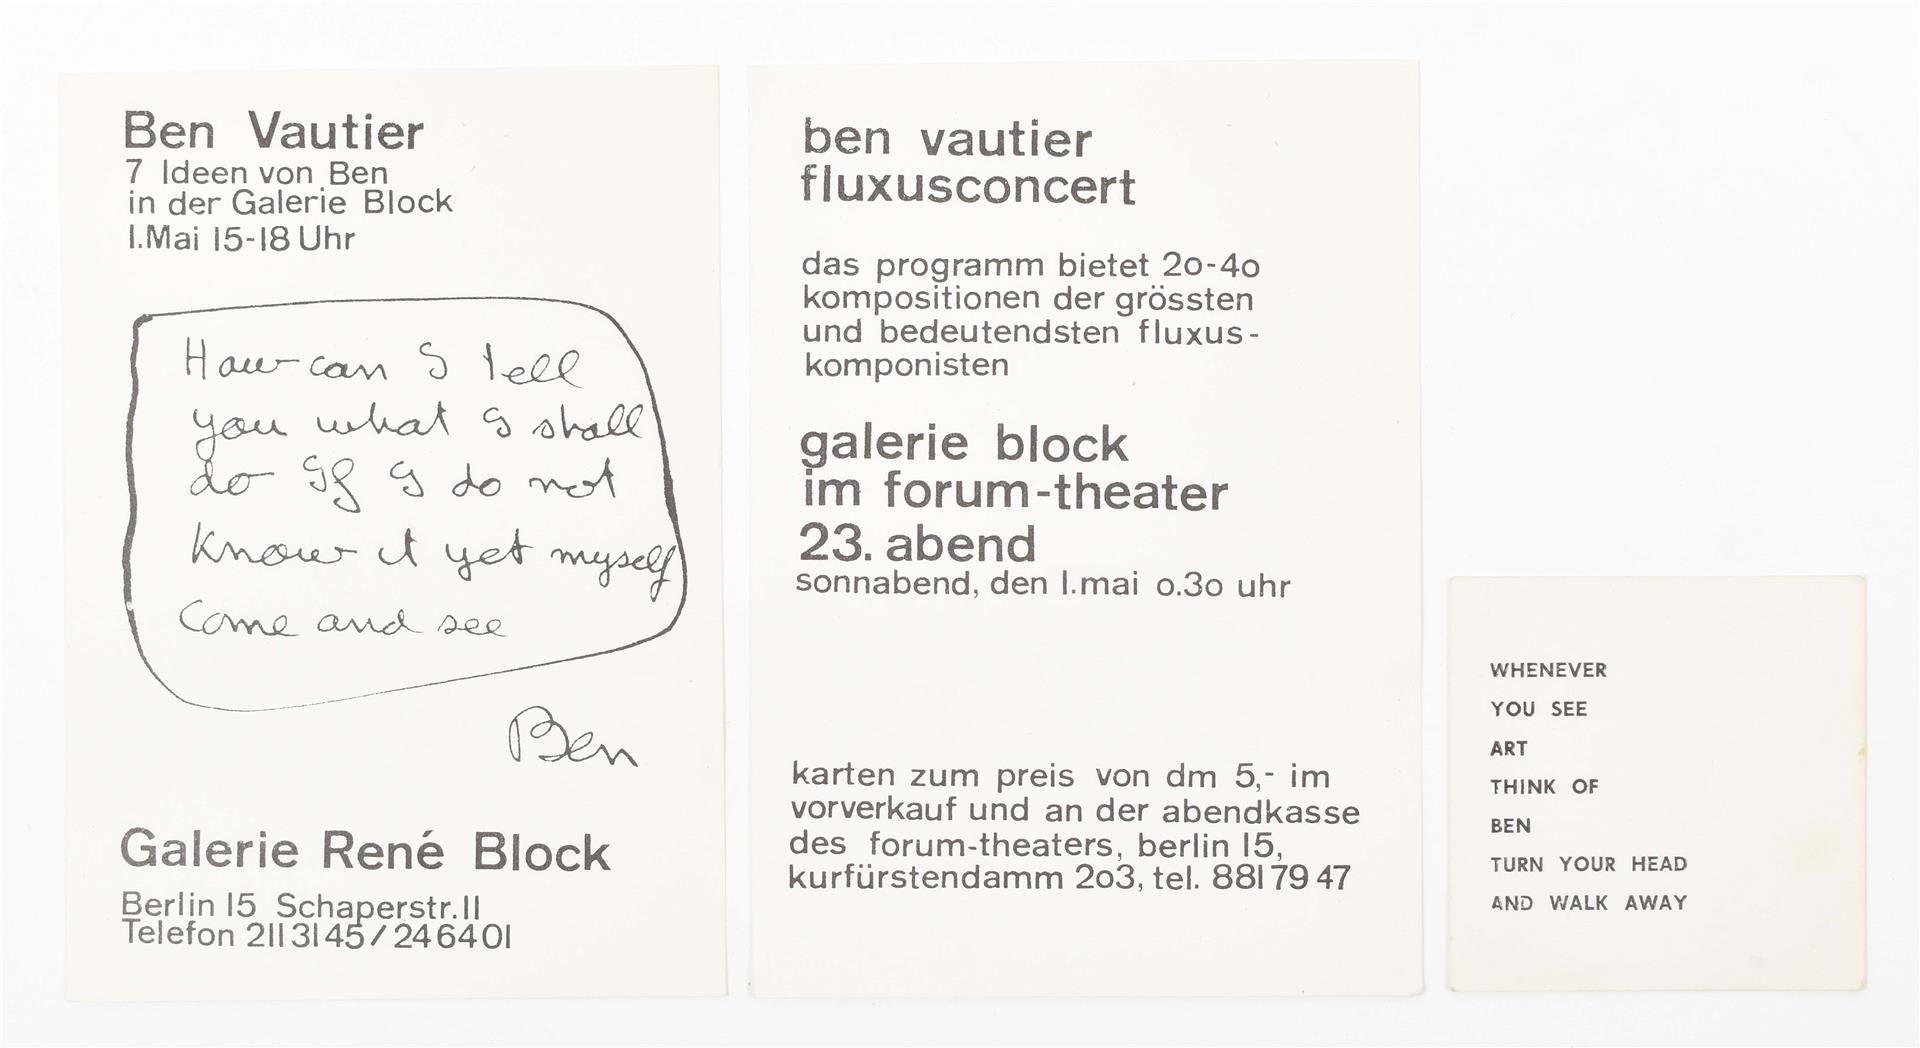 Ben Vautier
7 Ideen von Ben
in der Galerie Block
1.Mai 15-18 Uhr
How can I tell
you what I shall
do If I do not
know it yet myself
Come and see
Ben
Galerie René Block
Berlin 15 Schaperstr.11
Telefon 2113145/246401
ben vautier
fluxusconcert
das programm bietet 20-40
kompositionen der grössten
und bedeutendsten fluxus-
komponisten
galerie block
im forum-theater
23. abend
sonnabend, den 1.mai 0.30 uhr
karten zum preis von dm 5,- im
vorverkauf und an der abendkasse
des forum-theaters, berlin 15,
kurfürstendamm 203, tel. 881 79 47
WHENEVER
YOU SEE
ART
THINK OF
BEN
TURN YOUR HEAD
AND WALK AWAY